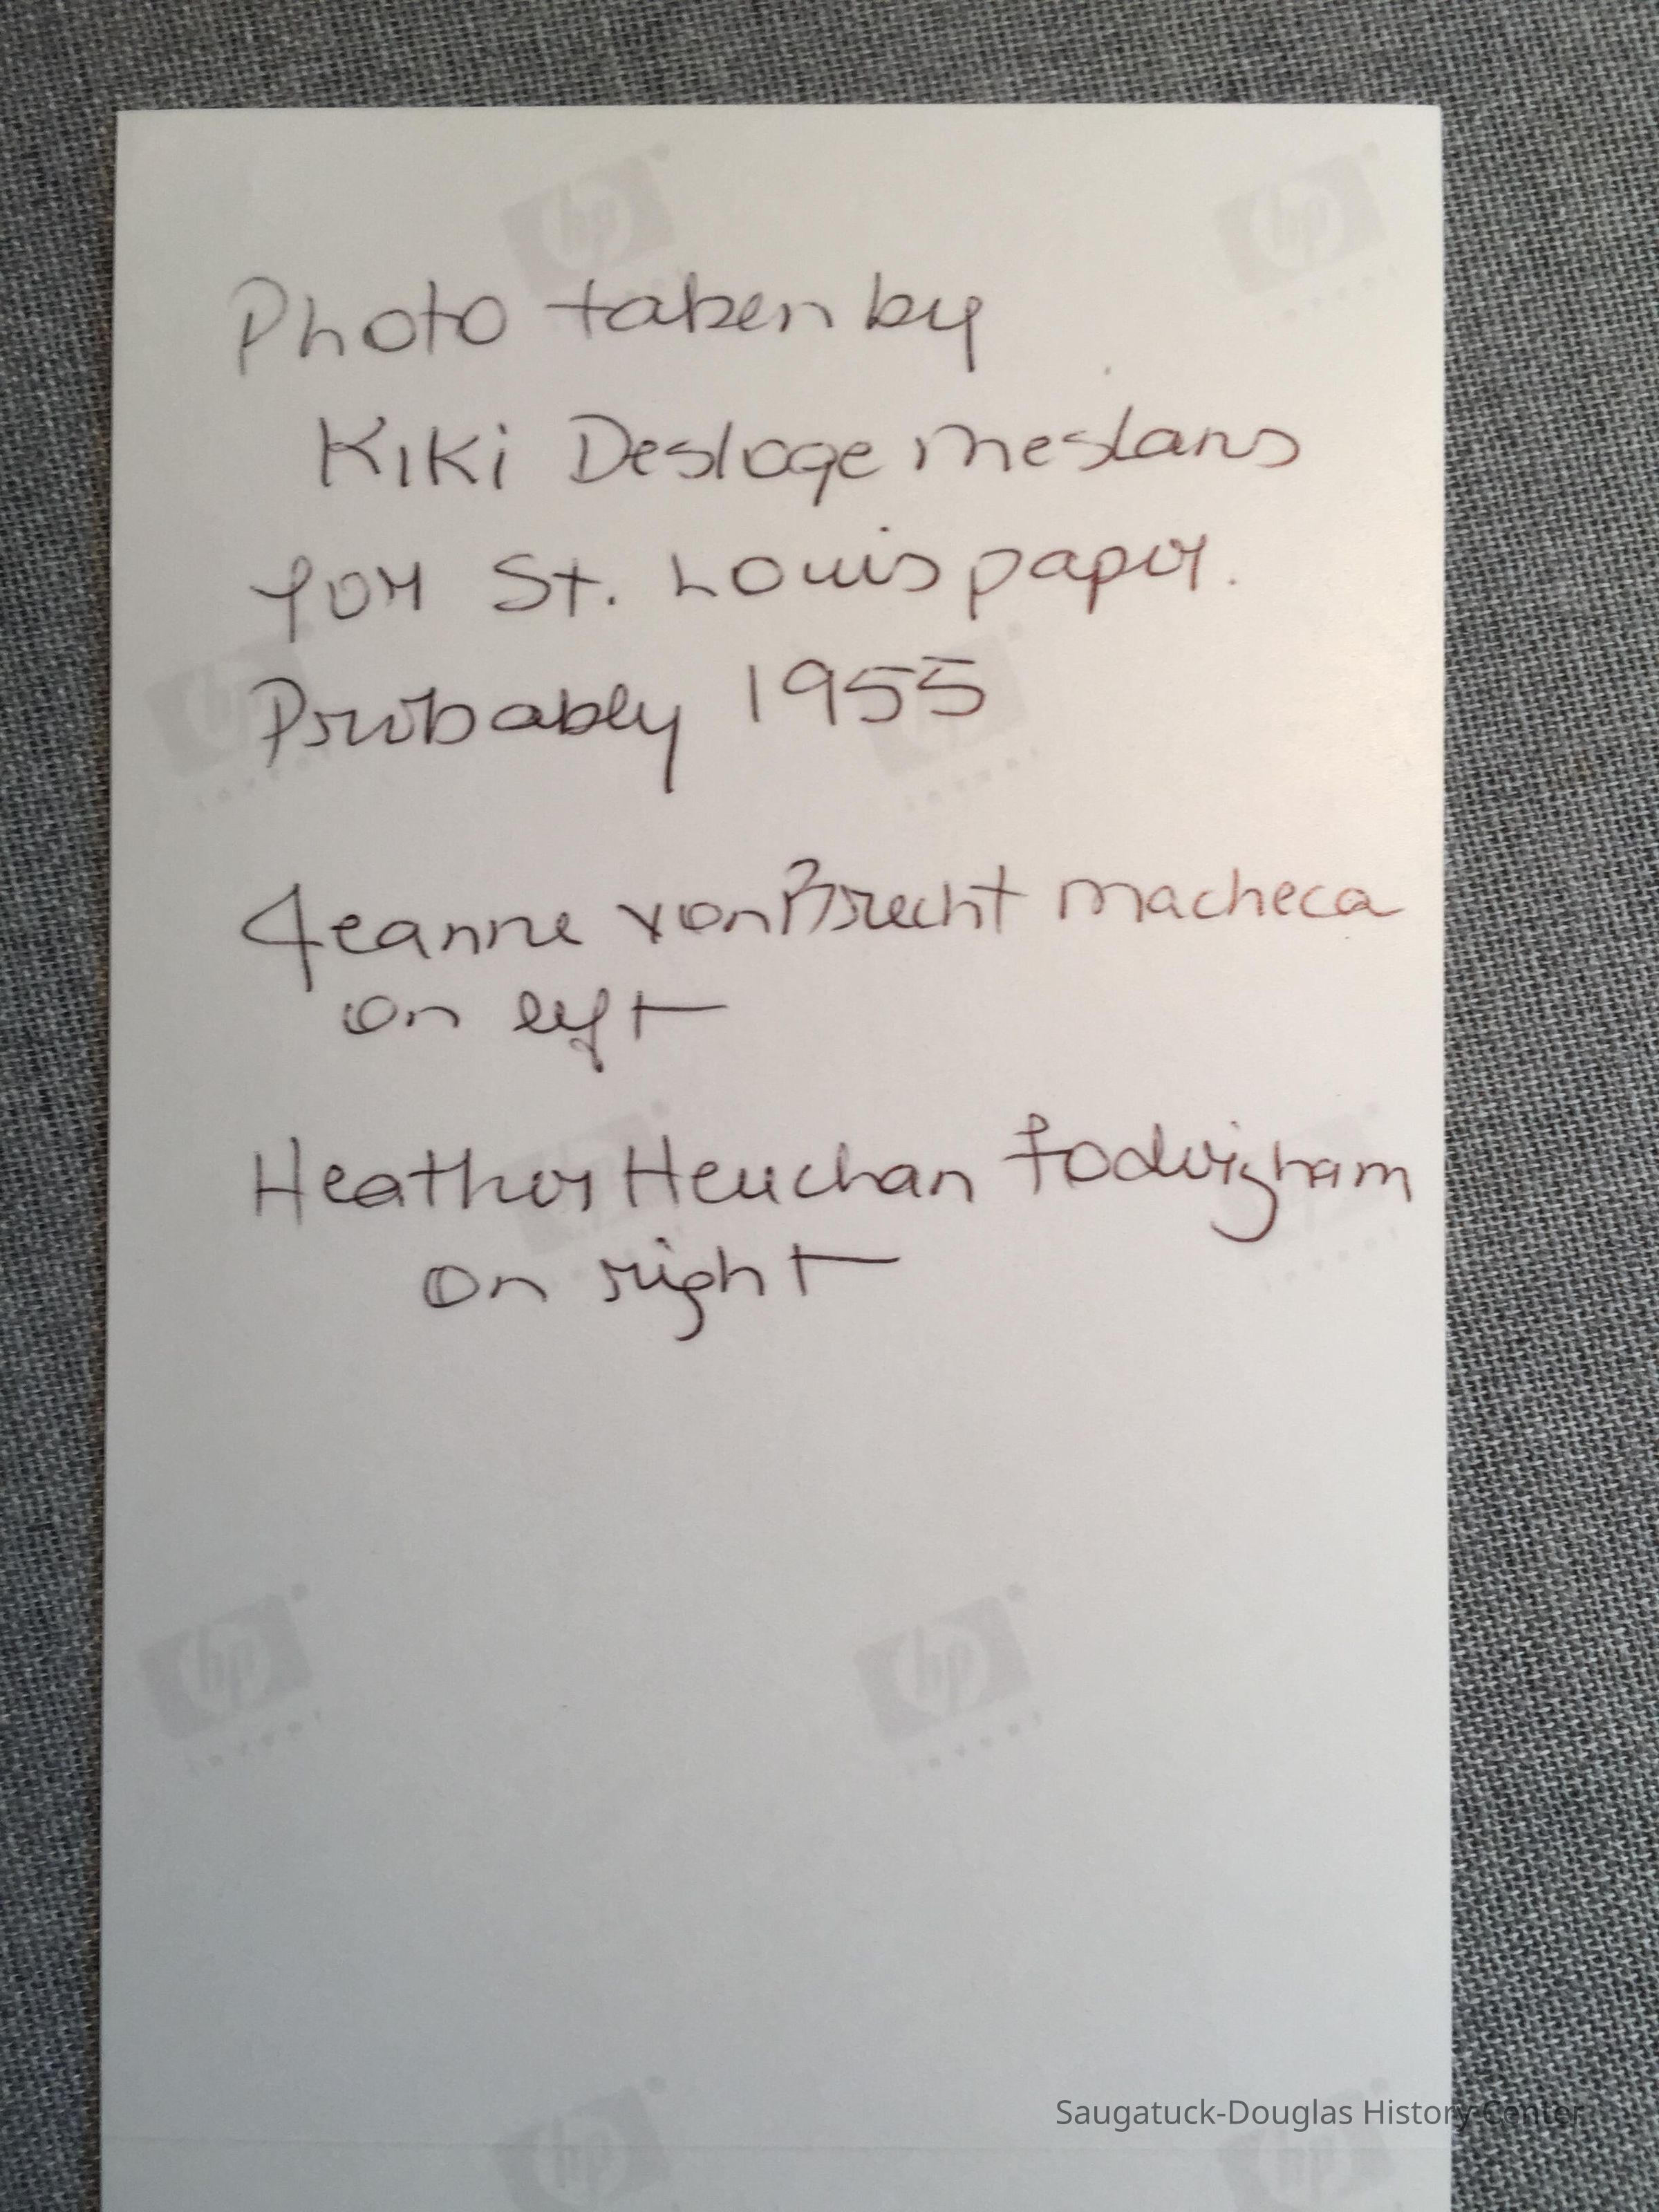 Photo taken by
Kiki Desloge Meslans
for St. Louis paper.
Probably 1955
Jeanne vonBrecht Macheca
on left
Heather Heuchan
on right
hp
invent
Saugatuck-Douglas History Center